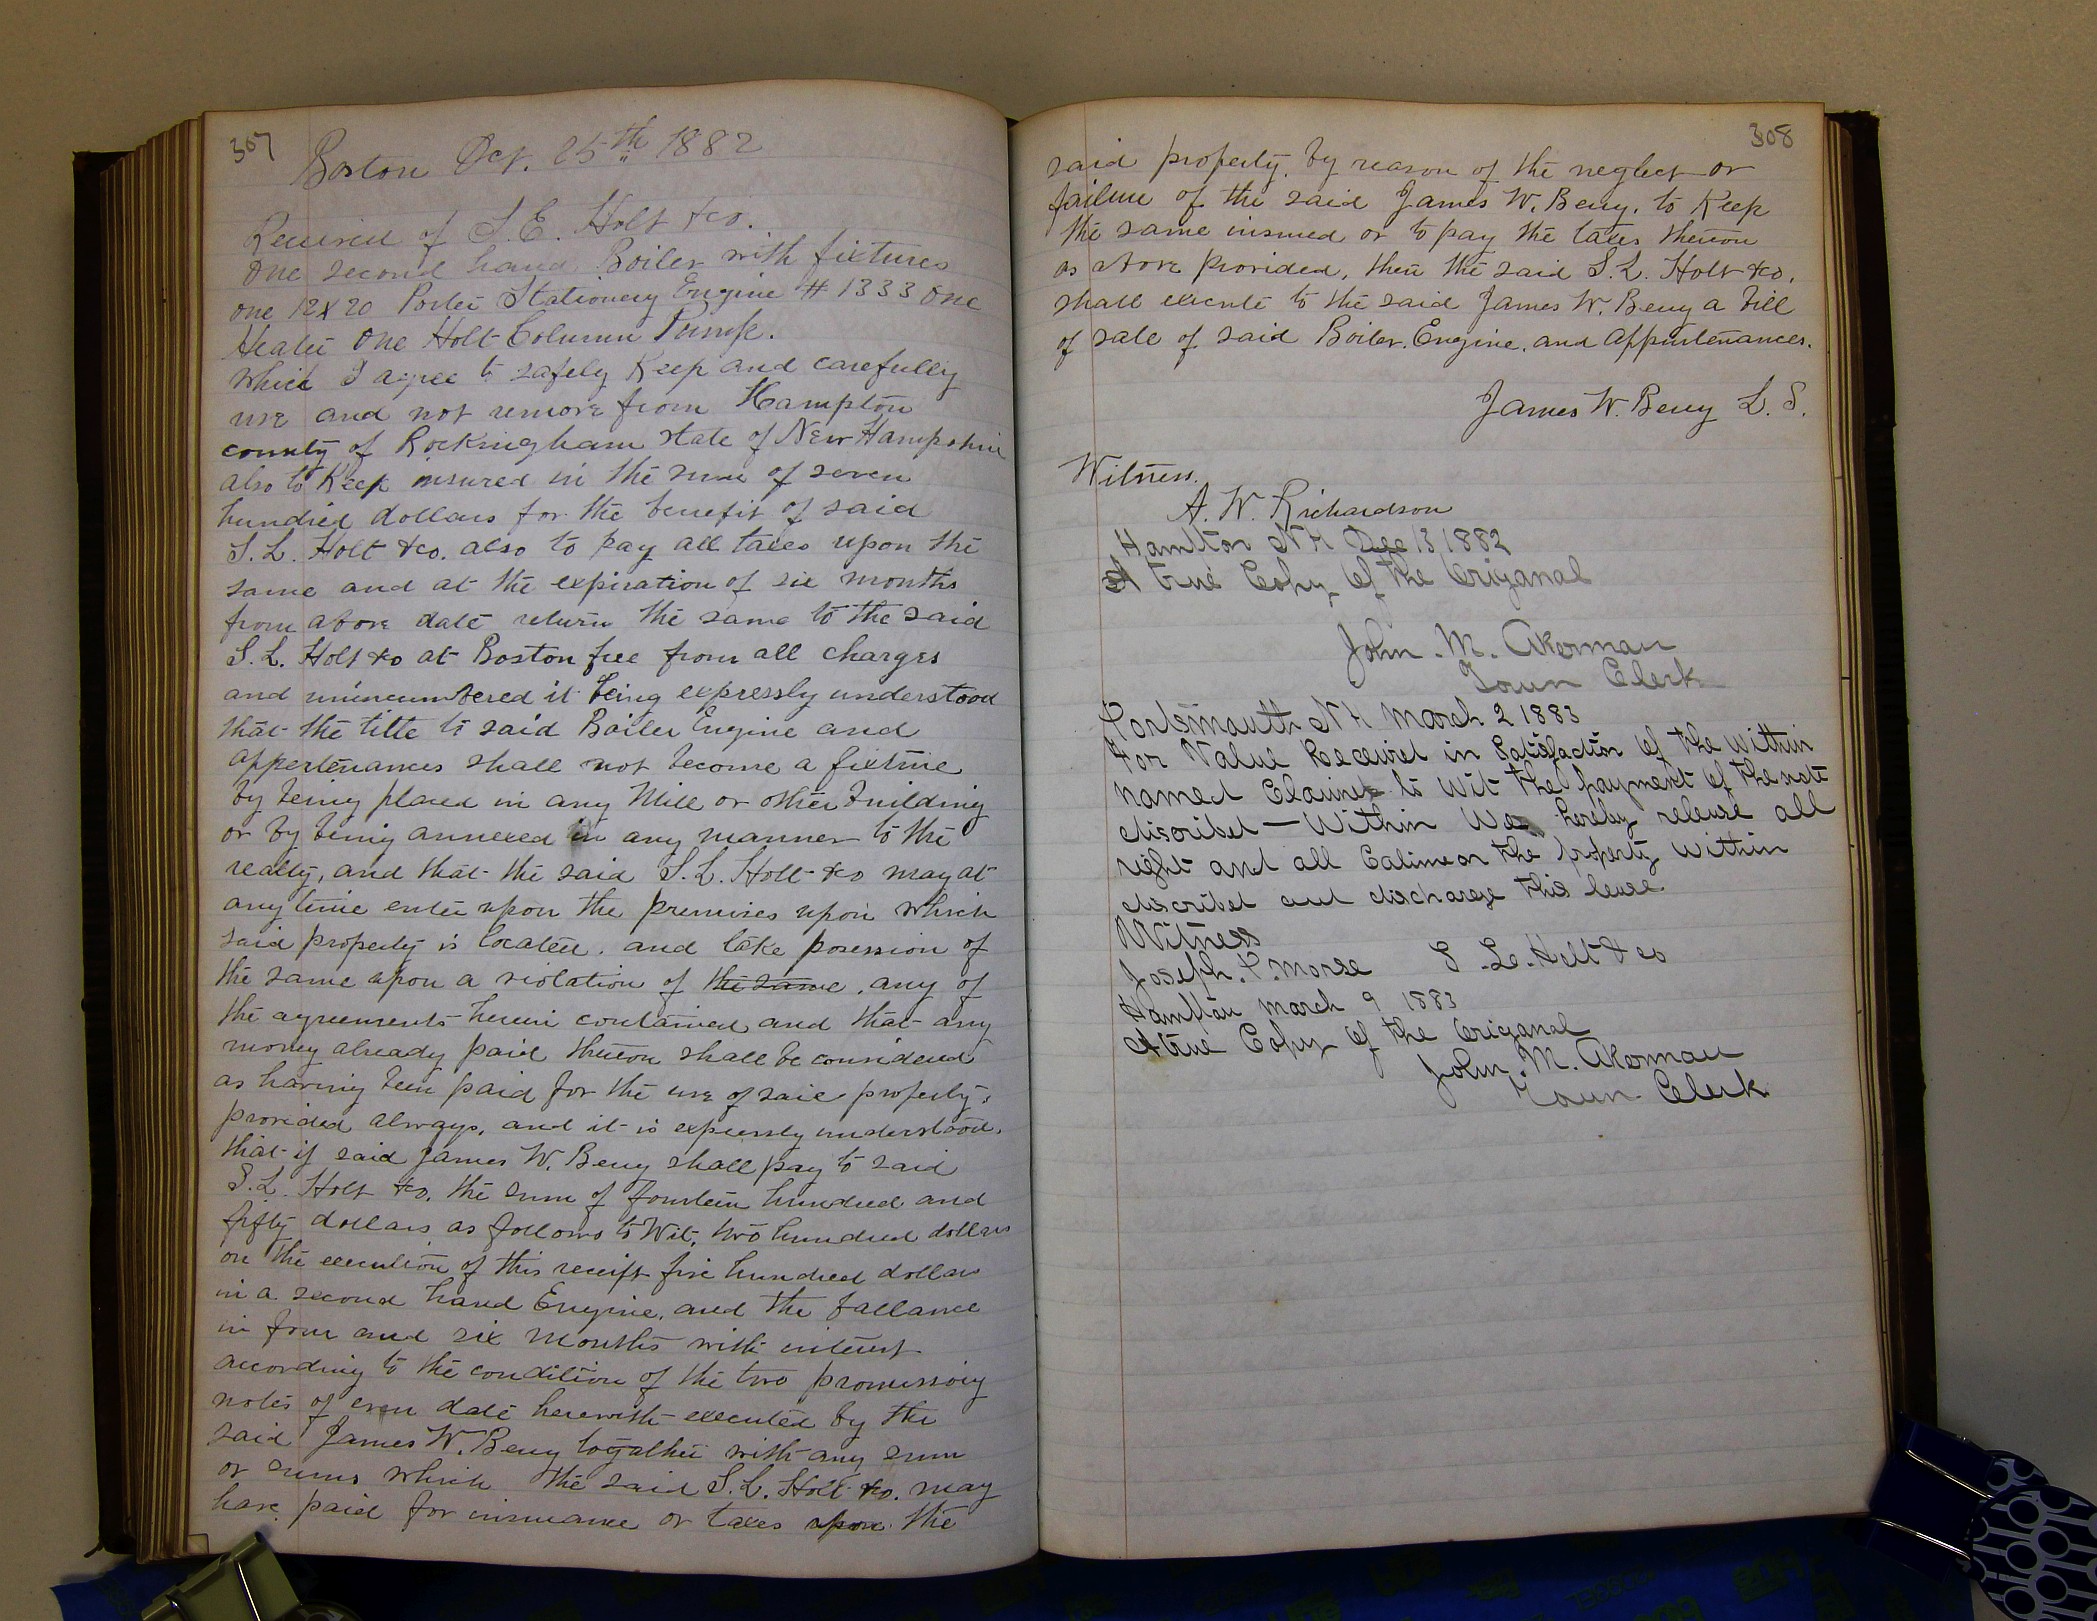 307
Boston Oct. 25th 1882
Received of S.E. Holt &co.
One second hand Boiler with fixtures
one 12x20 Porter Stationery Engine # 1333 One
Heater One Holt Column Pump.
Which I agree to safely Keep and carefully
use and not remove from Hampton
county of Rockingham state of New Hampshire
also to Keep insured in the sum of seven
hundred dollars for the benefit of said
S. L. Holt &co. also to pay all taxes upon the
same and at the expiration of six months
from above date return the same to the said
S. L. Holt &co at Boston free from all charges
and unincumbered it being expressly understood
that the title to said Boiler Engine and
appertenances shall not become a fixture
by being placed in any Mill or other building
or by being annexed in any manner to the
realty, and that the said S. L. Holt &co may at
any time enter upon the premises upon which
said property is located. and take posession of
the same upon a violation of the same, any of
the agreements herein contained and that any
money already paid thereon shall be considered
as having been paid for the use of said property;
provided always, and it is expressly understood.
that if said James W. Berry shall pay to said
S. L. Holt &co. the sum of fourteen hundred and
fifty dollars as follows to Wit, two hundred dollars
on the execution of this receipt five hundred dollars
in a second hand Engine, and the ballance
in four and six months with interest
according to the condition of the two promissory
notes of even date herewith executed by the
said James W. Berry togather with any sum
or sums which the said S. L. Holt &co. may
have paid for insurance or taxes upon the
308
said property, by reason of the neglect or
failure of the said James W. Berry, to Keep
the same insured or to pay the taxes thereon
as above provided, then the said S. L. Holt &co,
shall execute to the said James W. Berry a bill
of sale of said Boiler. Engine. and Appurtenances.
James W. Berry L. S.
Witness.
A. W. Richardson
Hamlton N H Dec 13 1882
A true Copy of the Origanal
John. M. Akerman
Town Clerk
Portsmouth N H March 2 1883
For Value Received in Satisfaction of the Within
named Claimes to Wit the payment of the note
discribet — Within We hereby release all
right and all Calime on the property Within
discribet and discharge this lease.
Witness
Joseph. P. Morse S. L. Holt & co
Hampton March 9 1883
A true Copy of the Origanal
John. M. Akerman
Town Clerk